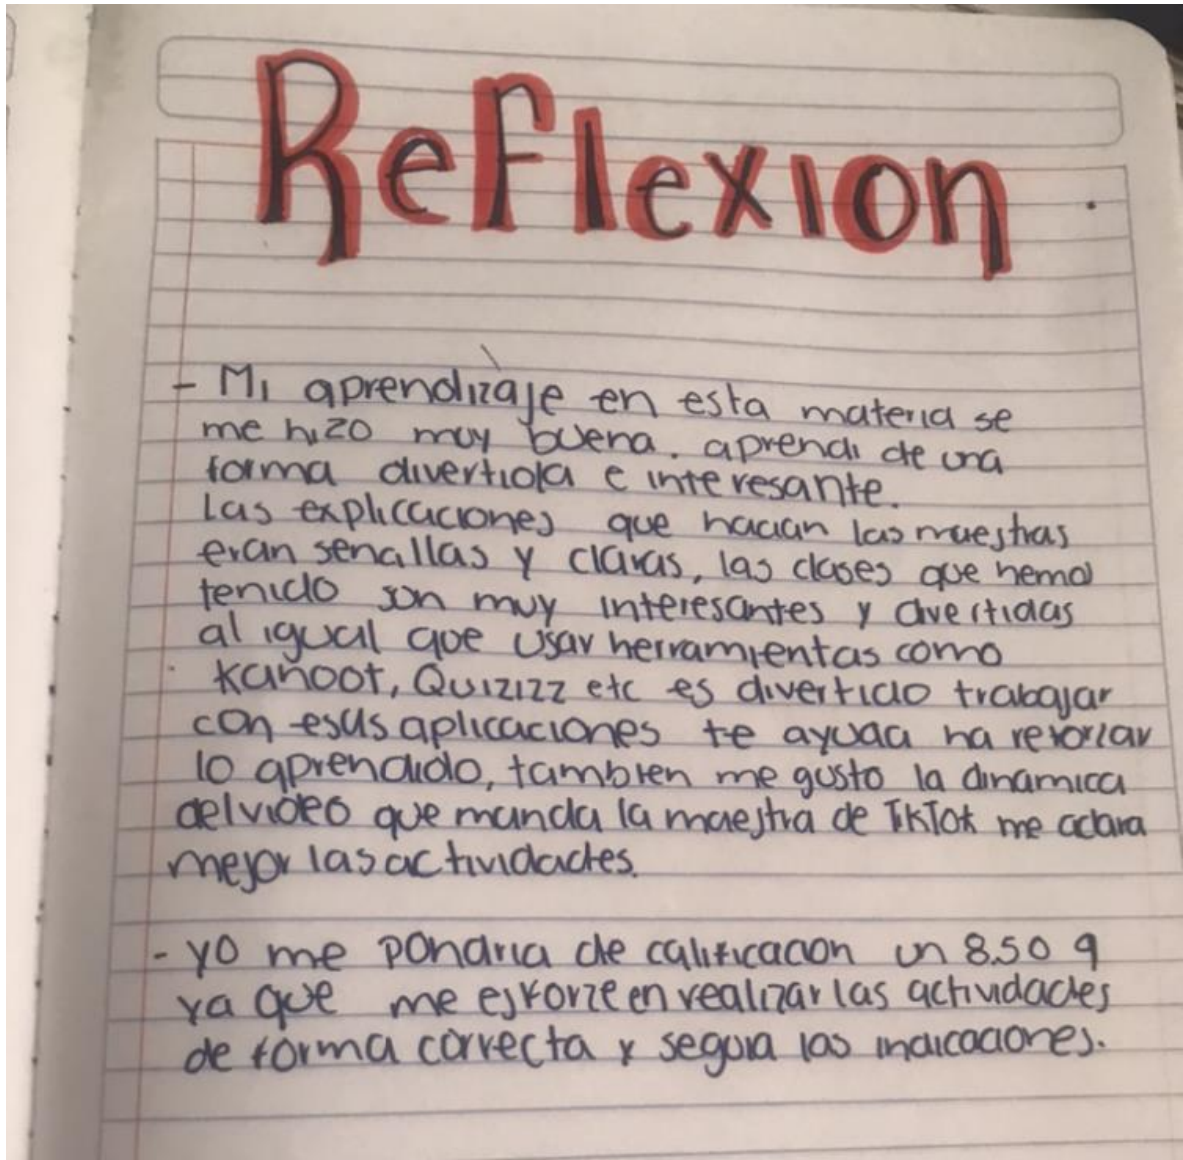 Reflexion
- Mi aprendizaje en esta materia se
me hizo muy buena. aprendi de una
forma divertida e interesante.
Las explicaciones que hacian las maestras
eran sencillas y claras, las clases que hemos
tenido son muy interesantes y divertidas
al igual que usar herramientas como
Kahoot, Quizizz etc es divertido trabajar
con esas aplicaciones te ayuda ha reforzar
lo aprendido, tambien me gusto la dinamica
del video que manda la maestra de TikTok me aclara
mejor las actividades.
- yo me pondria de calificacion un 8.5 o 9
ya que me esforze en realizar las actividades
de forma correcta y seguia las indicaciones.